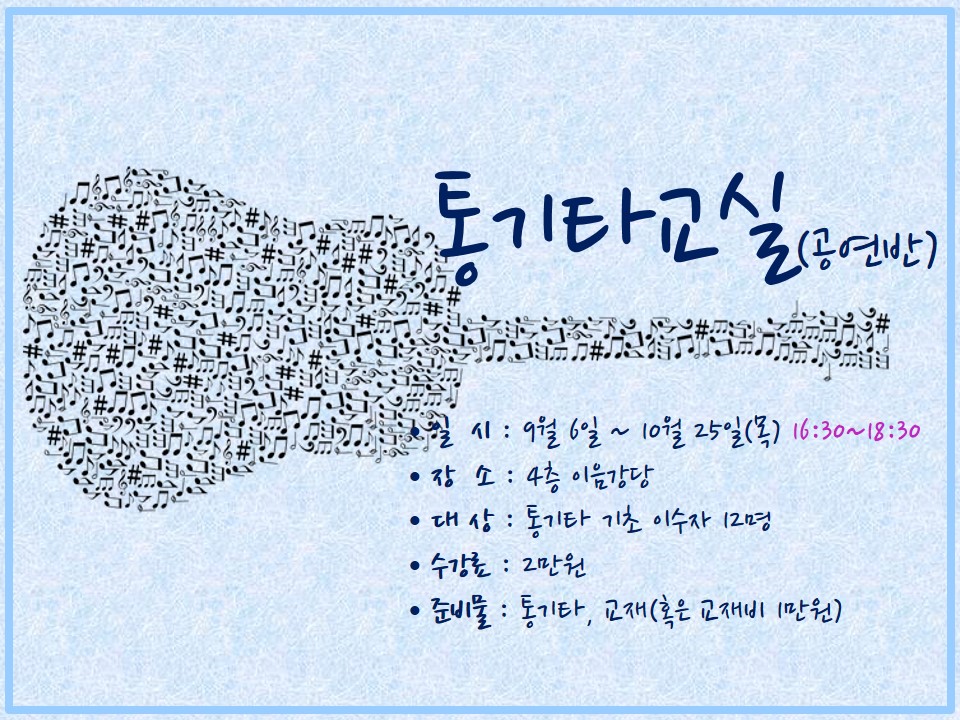 통기타교실(공연반)
• 일 시 : 9월 6일 ~ 10월 25일(목) 16:30~18:30
• 장 소 : 4층 이음강당
• 대 상 : 통기타 기초 이수자 12명
• 수강료 : 2만원
• 준비물 : 통기타, 교재(혹은 교재비 1만원)